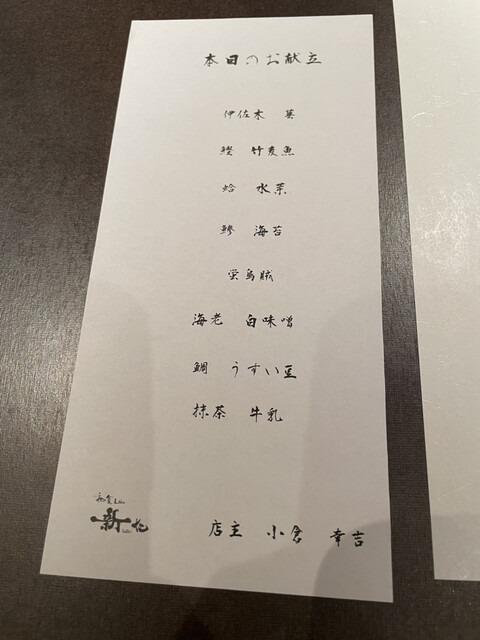 本日のお献立
伊佐木 葵
鰹 竹麦魚
蛤 水菜
鰺 海苔
蛍烏賊
海老 白味噌
鯛 うすい豆
抹茶 牛乳
新花
店主 小倉 幸吉